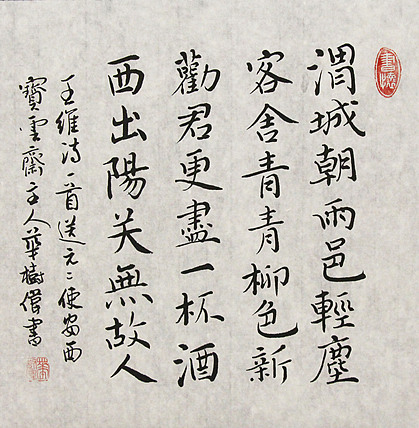 渭城朝雨邑輕塵
客舍青青柳色新
勸君更盡一杯酒
西出陽关無故人
王維诗一首送元二使安西
寶雲齋主人華樹書